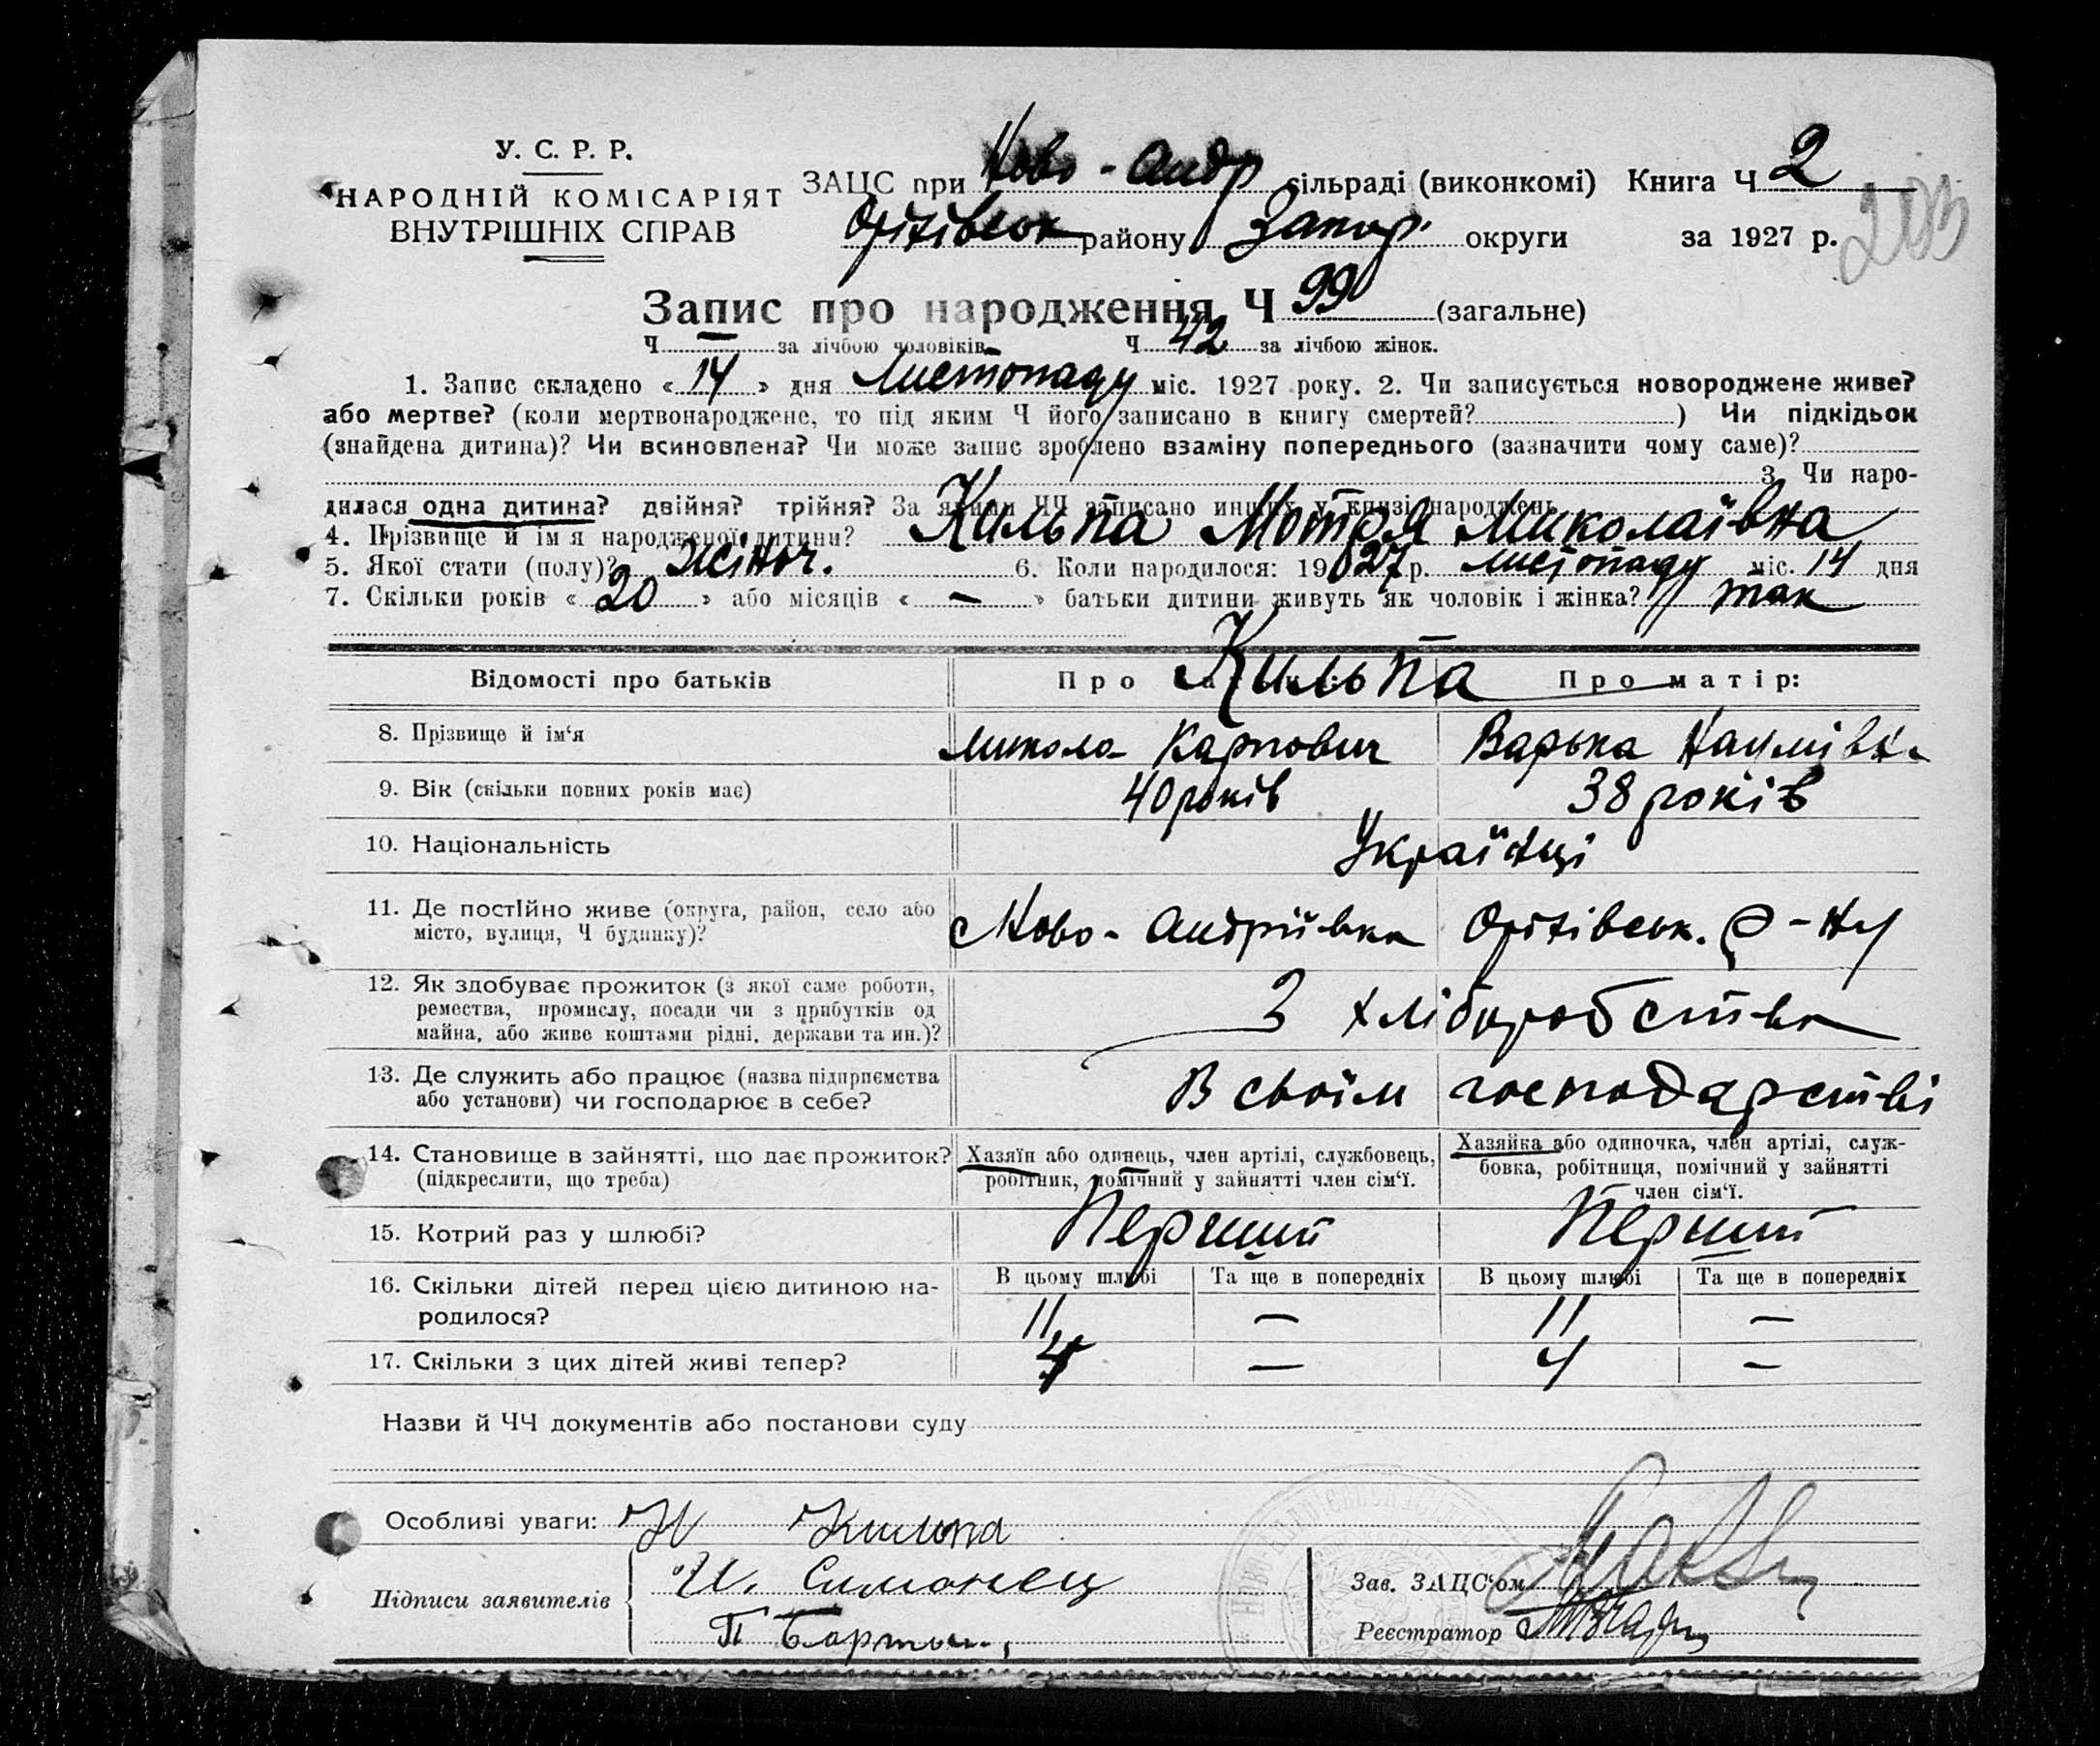 У. С. Р. Р.
НАРОДНІЙ КОМІСАРІЯТ
ВНУТРІШНІХ СПРАВ
ЗАЦС при Ново-Андр сільраді (виконкомі) Книга Ч 2
Оріхівськ району Запор. округи за 1927 р.
203
Запис про народження Ч 99 (загальне)
Ч — за лічбою чоловіків Ч 42 за лічбою жінок.
1. Запис складено « 14 » дня Листопаду міс. 1927 року. 2. Чи записується новороджене живе?
або мертве? (коли мертвонароджене, то під яким Ч його записано в книгу смертей? ) Чи підкідьок
(знайдена дитина)? Чи всиновлена? Чи може запис зроблено взаміну попереднього (зазначити чому саме)?
3. Чи наро-
дилася одна дитина? двійня? трійня? За якими ЧЧ записано инших у книзі народжень
4. Прізвище й імя народженої дитини? Кильпа Мотря Миколаївна
5. Якої стати (полу)? жіноч. 6. Коли народилося: 1927 р. листопаду міс. 14 дня
7. Скільки років « 20 » або місяців « — » батьки дитини живуть як чоловік і жінка? так
Відомості про батьків Про Кильпа Про матір:
8. Прізвище й ім‘я Микола Карпович Варька Наумівна
9. Вік (скільки повних років має) 40 років 38 років
10. Національність Українці
11. Де постійно живе (округа, район, село або
місто, вулиця, Ч будинку)? Ново-Андріївка Оріхівськ. Р-ну
12. Як здобуває прожиток (з якої саме роботи,
ремества, промислу, посади чи з прибутків од
майна, або живе коштами рідні, держави та ин.)? З хліборобства
13. Де служить або працює (назва підприємства
або установи) чи господарює в себе? В своїм господарстві
14. Становище в зайнятті, що дає прожиток?
(підкреслити, що треба)
Хазяїн або одинець, член артілі, службовець,
робітник, помічний у зайнятті член сім‘ї.
Хазяйка або одиночка, член артілі, служ-
бовка, робітниця, помічний у зайнятті
член сім‘ї.
15. Котрий раз у шлюбі? Перший Перший
16. Скільки дітей перед цією дитиною на-
родилося?
В цьому шлюбі Та ще в попередніх В цьому шлюбі Та ще в попередніх
11 — 11 —
17. Скільки з цих дітей живі тепер? 4 — 4 —
Назви й ЧЧ документів або постанови суду
Особливі уваги: Н Кильпа
Підписи заявителів И. Симонец
П
Зав. ЗАЦС‘ом
Реєстратор